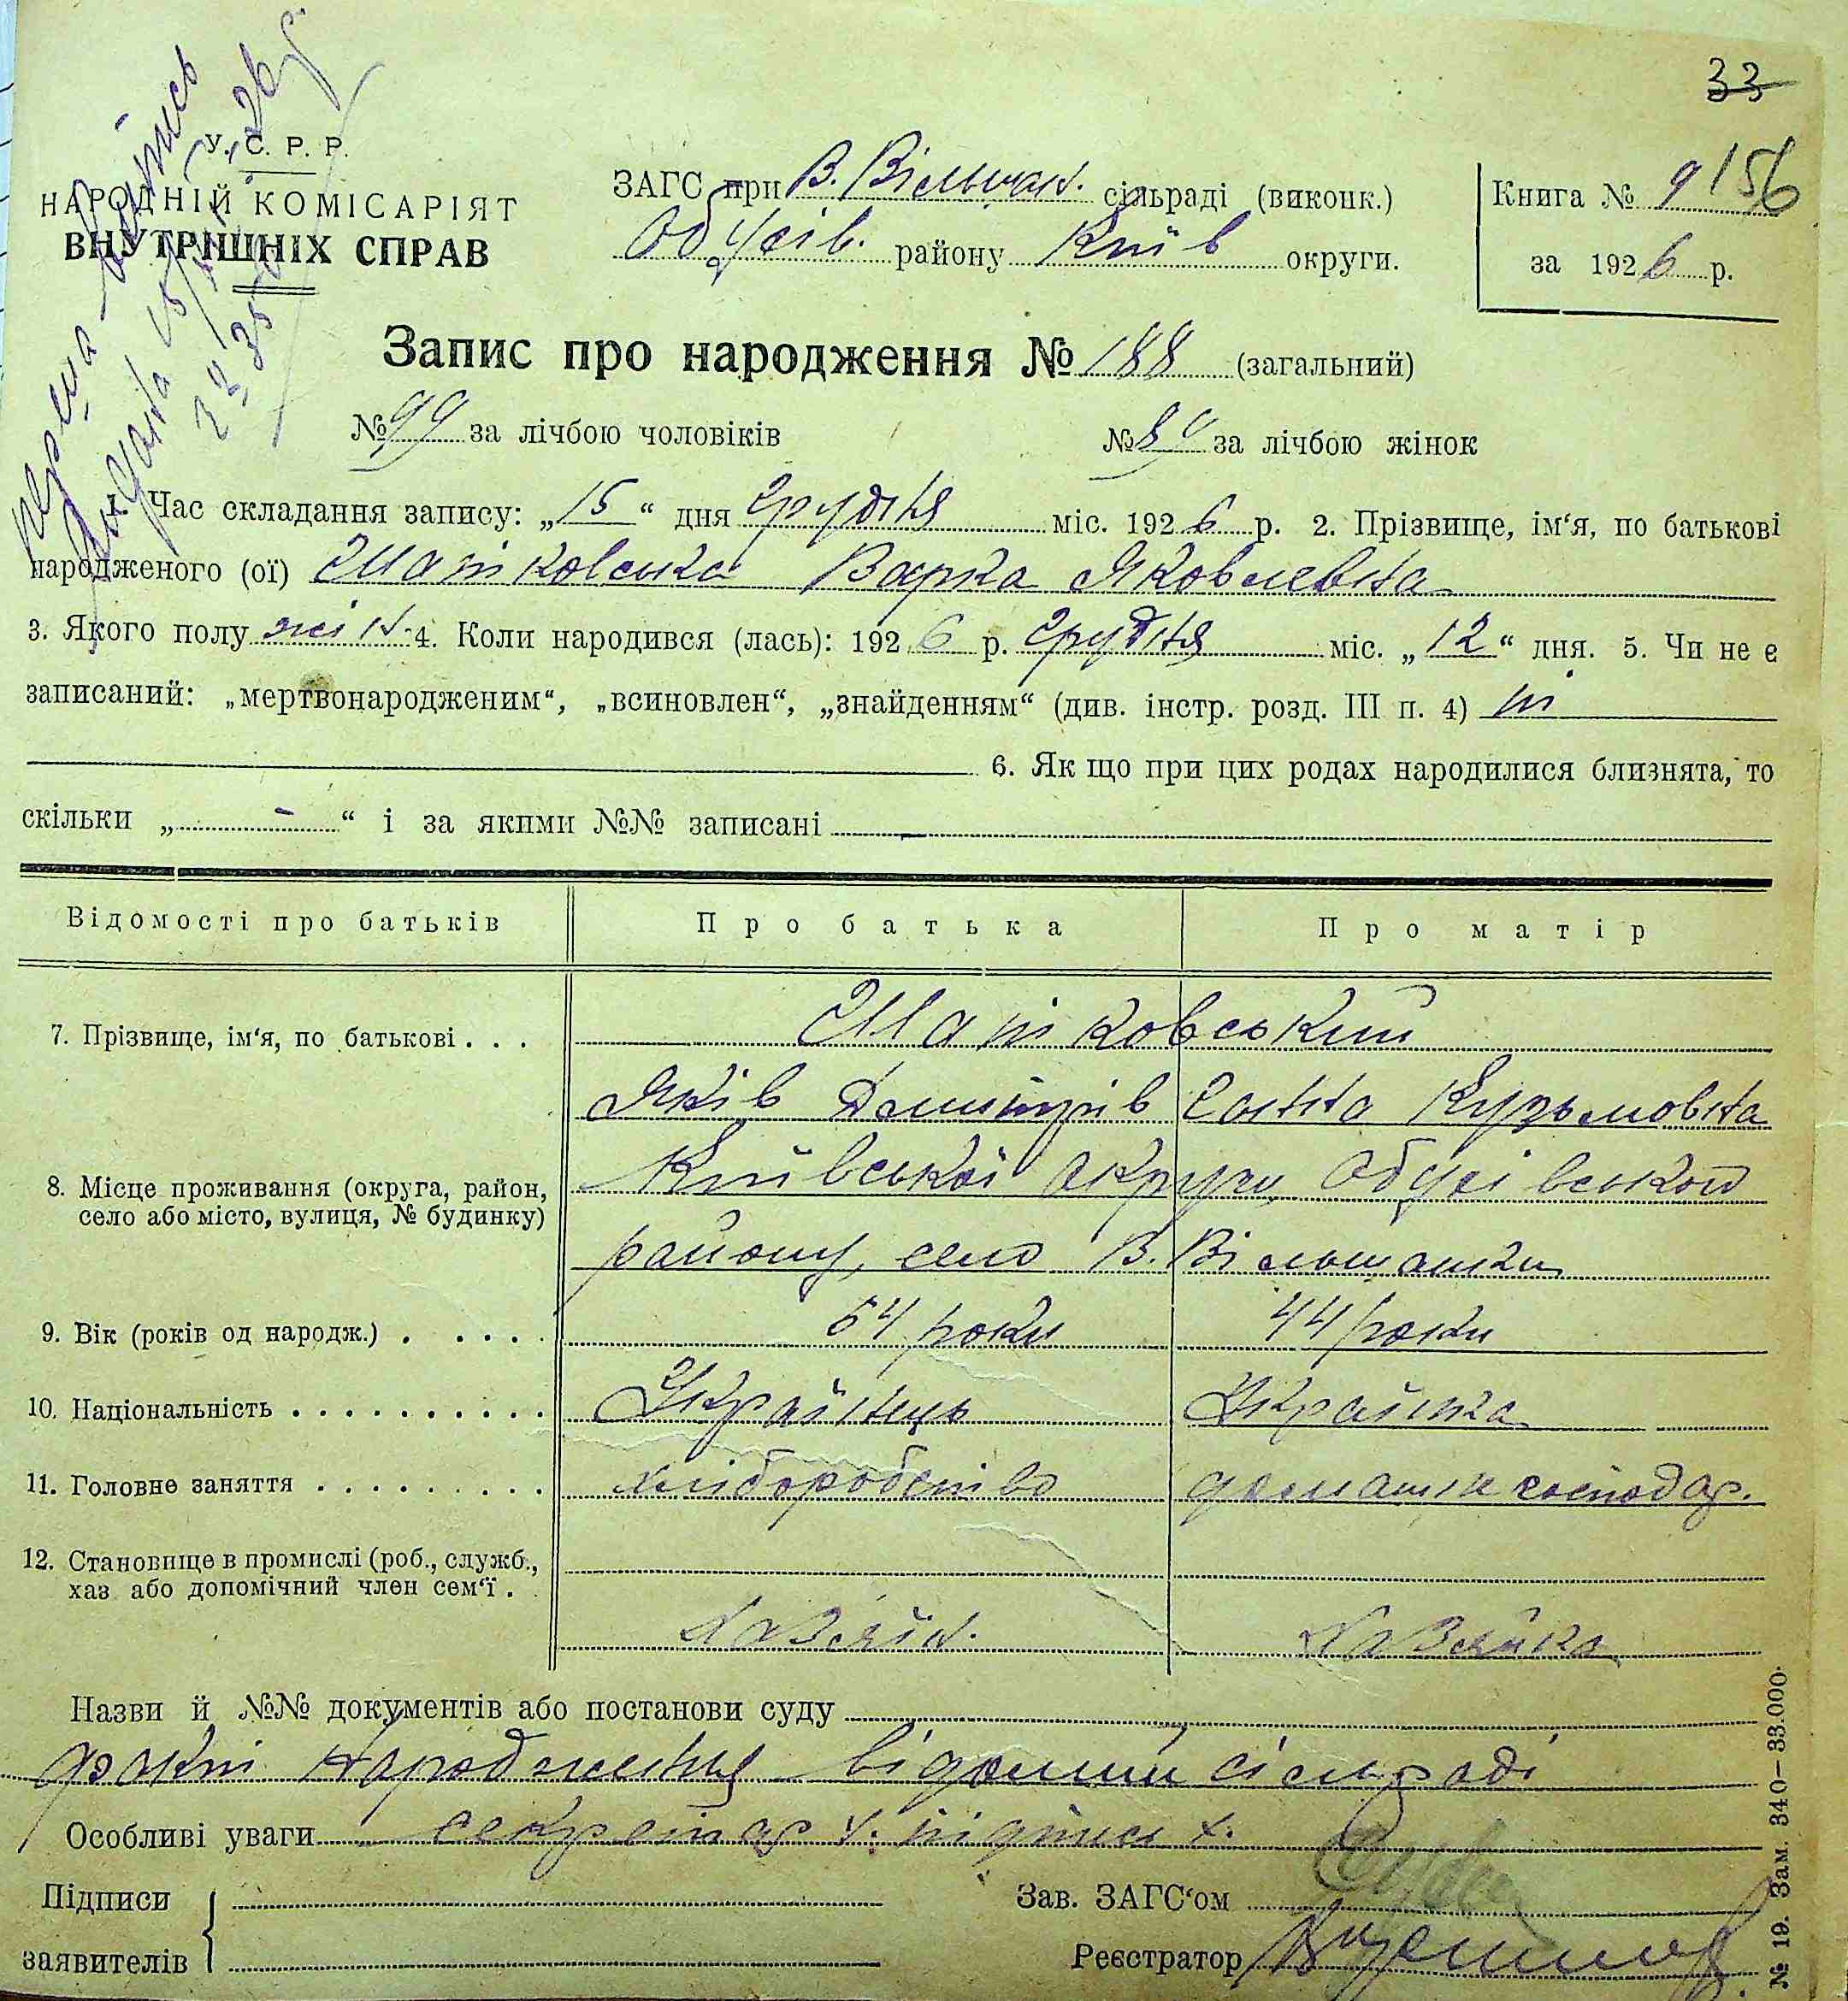 33
У. С. Р. Р.
НАРОДНІЙ КОМІСАРІЯТ
ВНУТРІШНІХ СПРАВ
ЗАГС при В. Вільшан. сільраді (виконк.)
Обухів. району Київ округи.
Книга № 9 156
за 1926 р.
Запис про народження № 188 (загальний)
№ 99 за лічбою чоловіків
№ 89 за лічбою жінок
1. Час складання запису: „15“ дня грудня міс. 1926 р. 2. Прізвище, ім‘я, по батькові
народженого (ої) Шатковська Варка Яковлевна
3. Якого полу жін. 4. Коли народився (лась): 1926 р. грудня міс. „12“ дня. 5. Чи не є
записаний: „мертвонародженим“, „всиновлен“, „знайденням“ (див. інстр. розд. III п. 4) ні
6. Як що при цих родах народилися близнята, то
скільки „ - “ і за якими №№ записані -
Відомості про батьків Про батька Про матір
7. Прізвище, ім‘я, по батькові . . . Шатковський
Яків Дмитрів Ганна Кузьмовна
8. Місце проживання (округа, район, село або місто, вулиця, № будинку) Київської округи, Обухівського
району, село В. Вільшанки
9. Вік (років од народж.) . . . . . 54 роки 44 роки
10. Національність . . . . . . . . . . . Українець Українка
11. Головне заняття . . . . . . . . . . хліборобство домашн господар.
12. Становище в промислі (роб., служб.,
хаз або допомічний член сем‘ї .
Хазяїн. Хазяйка
Назви й №№ документів або постанови суду
факт народження відомий сільраді
Особливі уваги секретар
Підписи
заявителів
Зав. ЗАГС‘ом
Реєстратор
№ 19. Зам. 340—33.000.